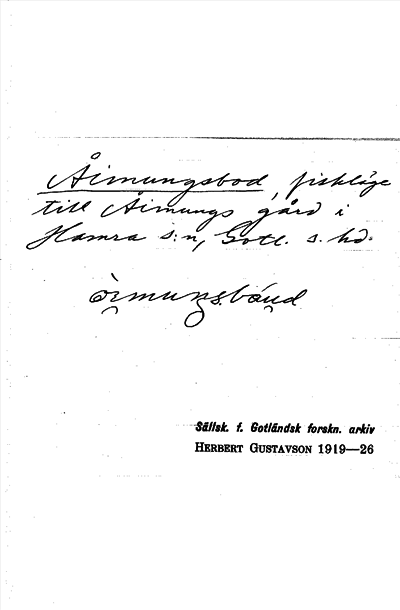 Åimungsbod, fiskläge
till Aimungs gård i
Hamra s:n, Gotl. s. hd.
òi̯muŋsbáu̯d
Sällsk. f. Gotländsk forskn. arkiv
HERBERT GUSTAVSON 1919—26